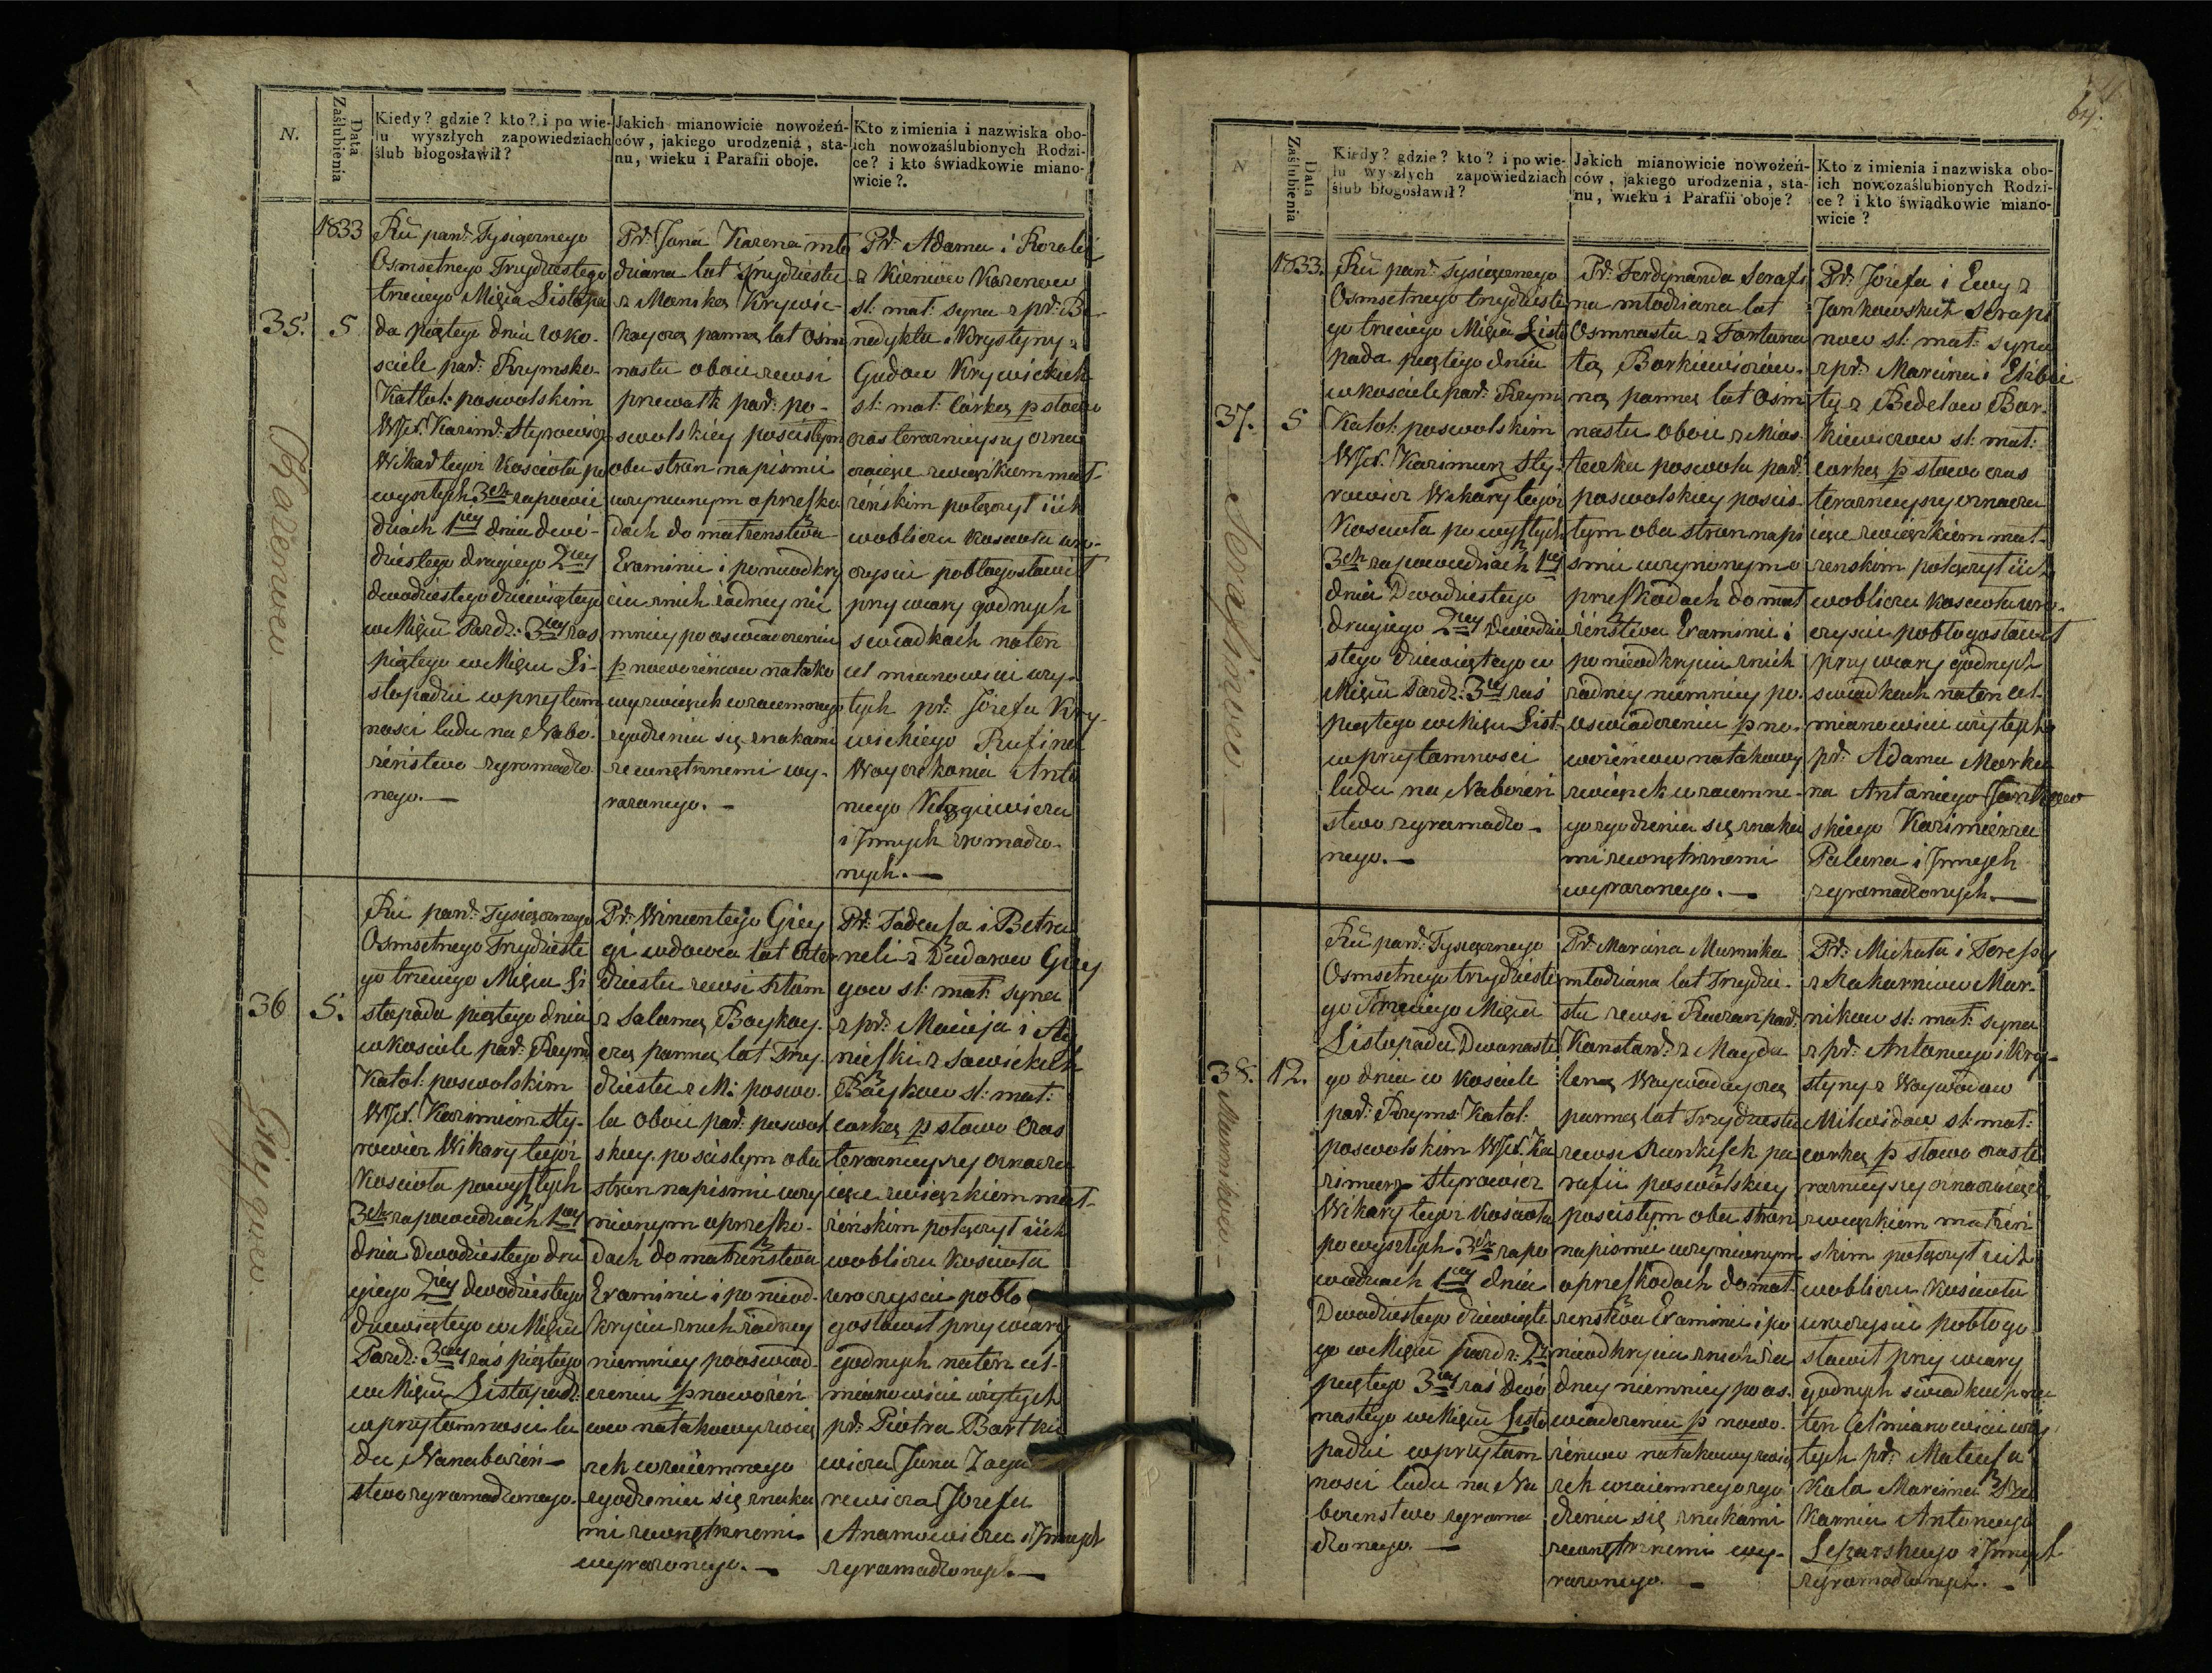 N.
Data Zaślubienia
Kiedy? gdzie? kto? i po wie-
lu wyszłych zapowiedziach
ślub błogosławił?
Jakich mianowicie nowożeń-
ców, jakiego urodzenia, sta-
nu, wieku i Parafii oboje.
Kto z imienia i nazwiska obo-
ich nowozaślubionych Rodzi-
ce? i kto świadkowie miano-
wicie?.
1833
35.
5
Karenow.
Ru pańs: Tysięcznego
Osmsetnego Trzydziestego
trzeciego Mięca Listopa
da piątego dnia w ko-
sciele par: Rzymsko-
Katol: poswolskim
WJX. Kazim: Styrowicz
Wikary tegoż Koscioła po
wyszłych 3ch zapowie
dziach 1szey dnia dwó-
dziestego drugiego 2giey
dwodziestego dziewiątego
w Mięcu Pazdz: 3ciey zas
piątego w Mięcu Li-
stopadzie w przytom
nosci ludu na Nabo-
żeństwo zgromadzo
nego.—
Pr: Jana Karena mło
dziana lat Trzydziestu
z Maryką Krywic-
kayczą panną lat Osm
nastu oboie z wsi
przewałk par: po-
swolskiey po scisłym
obu stron na pismie
uczynionym o przeszko
dach do małżeństwa
Examinie i po nieodkry
ciu z nich żadney nie
mniey po oswiadczeniu
p nowożeńcow na tako
wy związek wzaiemnego
zgodzenia się znakami
zewnętrznemi wy-
rażonego.—
Pr: Adama i Rozalii
z Kierniow Karenow
sł: mał: syna z pr: Be
nedykta i Krystyny z
Gudow Krywickich
sł: mał: Córką p słowo
czas teraznieyszy ozna
czaiące związkiem mał-
żeńskim połączył i ich
w obliczu kosciola uro-
czyscie pobłogosławił
przy wiary godnych
swiadkach na ten
cel mianowicie wzy-
tych pr: Jozefa Kry-
wickiego Rufina
Woyczkania Anto
niego Kiłzgiewicza
i Jnnych zgromadzo-
nych.—
36
5.
Gieygow.
Ru pań: Tysięcznego
Osmsetnego Trzydzieste
go trzeciego Mięca Li
stopada piątego dnia
w kosciele par: Rzym
Katol: poswolskim
WJX. Kazimierz Sty-
rowicz Wikary tegoż
Kosciola po wyszłych
3ch zapowiedziach 1szey
dnia Dwodziestego dru
giego 2giey dwodziestego
dziewiątego w Mięcu
Pazdz: 3ciey zas piątego
w Mięcu Listopadz:
w przytomnosci lu
du Nanabożeń—
stwo zgromadzonego.
Pr: Wincentego Giey
gi wdowca lat Czter
dziestu z wsi Sztom
z Salomeą Boykay-
czą panną lat Trzy-
dziestu z M: poswo-
la oboie par: poswol
skiey. po scisłym obu
stron na pismie uczy
nionym o przeszko-
dach do małżeństwa
Examinie i po nieod-
kryciu z nich żadney
niemniey po oswiad-
czeniu p nowożeń
cow na takowy zwią
zek wzaiemnego
zgodzenia się znaka
mi zewnętrznemi
wyrażonego.—
Pr: Tadeusza i Petro
neli z Dudarow Giey
gow sł: mał: syna
z pr: Macieja i Ag
nieszki z Sawickich
Boyskow sł: mał:
corką p słowo Czas
teraznieyszy oznacza
iące związkiem mał-
żeńskim połączył i ich
w obliczu Kosciola
uroczyscie pobło
gosławił przy wiary
godnych na ten cel
mianowicie wzytych
pr: Piotra Bartki
wicza Jana Zaga
rewicza Jozefa
Anamowicza i Jnnych
zgromadzonych.—
64.
N
Data Zaślubienia
Kiedy? gdzie? kto? i po wie-
lu wyszłych zapowiedziach
ślub błogosławił?
Jakich mianowicie nowożeń-
ców, jakiego urodzenia, sta-
nu, wieku i Parafii oboje?
Kto z imienia i nazwiska obo-
ich nowozaślubionych Rodzi-
ce? i kto świadkowie miano-
wicie?
1833.
37.
5
Serafinow.
Ru pań: Tysięcznego
Osmsetnego trzydzieste
go trzeciego Mięca Listo
pada piątego dnia
w kosciele par: Rzym
Katol: poswolskim
WJX. Kazimierz Sty-
rowicz Wikary tegoż
Kosciola po wyszłych
3ch zapowiedziach 1szey
dnia Dwodziestego
drugiego 2giey Dwodzie
stego dziewiątego w
Mięcu Pazdz: 3ciey zas
piątego w Mięcu List:
w przytomnosci
ludu na Nabożeń
stwo zgromadzo—
nego.—
Pr: Ferdynanda Serafi
na młodziana lat
Osmnastu z Fortuna
tą Borkiewiczow-
ną panną lat Osm
nastu oboie z Mias-
teczka poswola par:
poswolskiey po scis-
łym obu stron na pi
smie uczynionym o
przeszkodach do mał
żeństwa Examinie i
po nieodkryciu z nich
żadney niemniey po-
oswiadczeniu p no-
wożeńcow na takowy
związek wzaiemne-
go zgodzenia się znaka
mi zewnętrznemi
wyrażonego.—
Pr: Jozefa i Ewy z
Jankowskich Serafi
now sł: mał: syna
z pr: Marcina i Elżbie
ty z Bedelow Bor-
kiewiczow sł: mał:
corką p słowo czas
teraznieyszy oznacza
iące związkiem mał-
żenskim połączył i ich
w obliczu kosciola uro-
czyscie pobłogosławił
przy wiary godnych
swiadkach na ten cel
mianowicie wzytych
pr: Adama Morku
na Antoniego Jankow
skiego Kazimierza
Paluna i Jnnych
zgromadzonych.—
38.
12.
Murnikow—
Ru pań: Tysięcznego
Osmsetnego trzydzieste
go Trzeciego Mięca
Listopada Dwonaste
go dnia w Kosciele
par: Rzyms: Katol:
poswolskim WJX. Ka
zimierz Styrowicz
Wikary tegoż Kosciola
po wyszłych 3ch zapo
wiedziach 1szey dnia
Dwodziestego dziewiąte
go w Mięcu pazdz: 2giey
piątego 3ciey zas Dwó
nastego w Mięcu Listo
padzie w przytom
nosci ludu na Na
bożenstwo zgroma
dzonego.—
Pr: Marcina Murnika
młodziana lat Trzydzie-
stu z wsi par:
Konstan: z Magda
leną Woywodayczą
panną lat Trzydziestu
z wsi Runkiszek pa
rafii poswolskiey
po scisłym obu stron
na pismie uczynionym
o przeszkodach do mał-
żenstwa Examinie i po
nieodkryciu z nich ża
dney niemniey po os-
wiadczeniu p nowo-
żencow na takowy zwią
zek wzaiemnego zgo
dzenia się znakami
zewnętrznemi wy-
rażonego.—
Pr: Michała i Teressy
z Kakarniow Mur-
nikow sł: mał: syna
z pr: Antoniego i Kry-
styny z Woywodow
Milwidow sł: mał:
corką p słowo czas te
raznieyszy oznaczaiące
związkiem małżeń
skim połączył i ich
w obliczu Kosciola
uroczyscie pobłogo
sławił przy wiary
godnych swiadkach na
ten Cel mianowicie wzy
tych pr: Mateusza
Kala Marcina
Karnia Antoniego
Leszarskiego i Jnnych
zgromadzonych.—